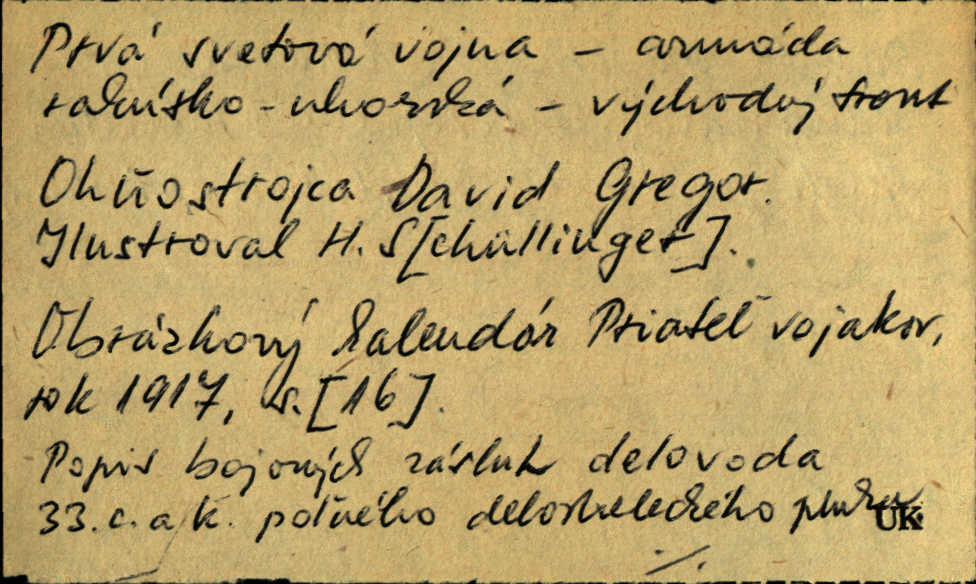 Prvá svetová vojna - armáda
rakúsko-uhorská - východný front
Ohňostrojca David Gregor.
Ilustroval H. S[chüllinger].
Obrázkový kalendár Priateľ vojakov,
rok 1917, s. [16].
Popis bojových zásluh delovoda
33. c. a k. poľného delostreleckého pluku
UK